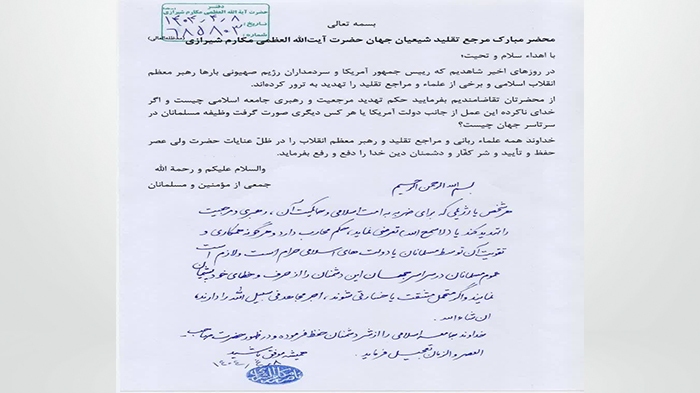 بسمه تعالی
دفتر
حضرت آیة‌الله العظمی مکارم شیرازی
تاریخ:
شماره:
محضر مبارک مرجع تقلید شیعیان جهان حضرت آیت‌الله العظمی مکارم شیرازی (مدظله‌العالی)
با اهداء سلام و تحیت؛
در روزهای اخیر شاهدیم که رییس جمهور آمریکا و سردمداران رژیم صهیونی بارها رهبر معظم
انقلاب اسلامی و برخی از علماء و مراجع تقلید را تهدید به ترور کرده‌اند.
از محضرتان تقاضامندیم بفرمایید حکم تهدید مرجعیت و رهبری جامعه اسلامی چیست و اگر
خدای ناکرده این عمل از جانب دولت آمریکا یا هر کس دیگری صورت گرفت وظیفه مسلمانان در
سرتاسر جهان چیست؟
خداوند همه علماء ربانی و مراجع تقلید و رهبر معظم انقلاب را در ظلّ عنایات حضرت ولی عصر
حفظ و تأیید و شر کفّار و دشمنان دین خدا را دفع و رفع بفرماید.
والسلام علیکم و رحمة الله
جمعی از مؤمنین و مسلمانان
بسم الله الرحمن الرحیم
هر شخص یا رژیمی که برای ضربه به امت اسلامی و حاکمیت آن، رهبری و مرجعیت
را تهدید کند یا (لاسمح الله) تعرضی نماید، حکم محارب دارد و هرگونه همکاری و
تقویت آن توسط مسلمانان یا دولت های اسلامی حرام است و لازم است
عموم مسلمانان در سراسر جهان این دشمنان را از حرف و خطای خود پشیمان
نمایند و اگر متحمل مشقت یا خسارتی شوند، اجر مجاهد فی سبیل الله را دارند،
ان شاء الله.
خداوند جامعه اسلامی را از شر دشمنان حفظ فرموده و در ظهور حضرت صاحب
العصر والزمان تعجیل فرماید.
همیشه موفق باشید